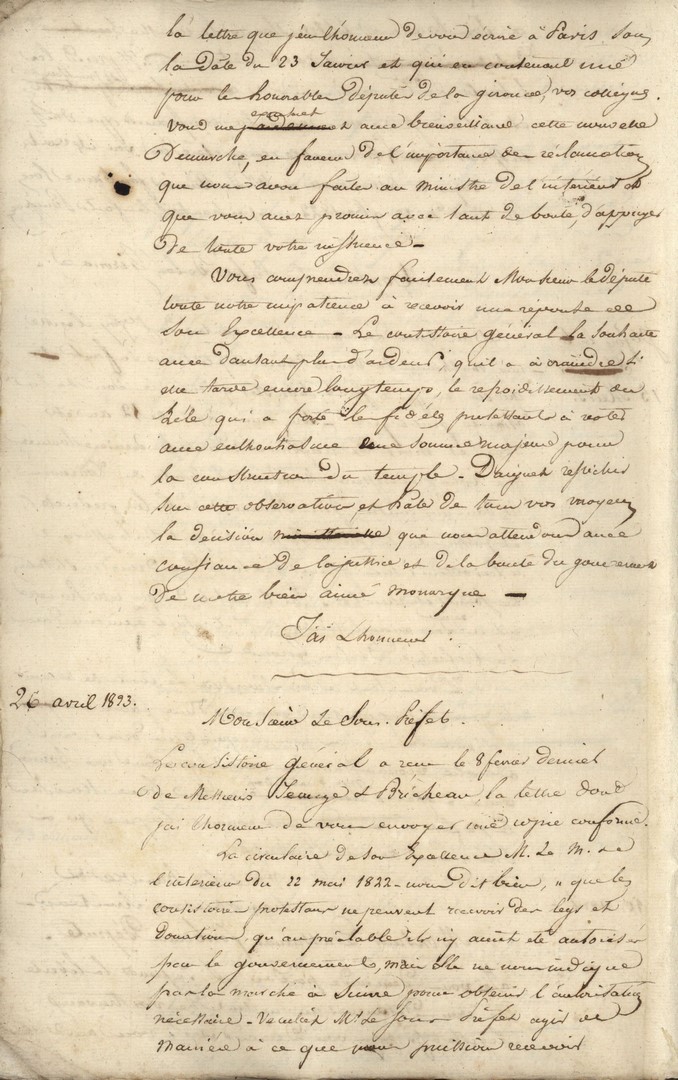 la lettre que j'eus l'honneur de vous écrire à Paris sous
la date du 23 Janvier et qui en contenait une
pour les honorables députés de la gironde, vos collègues.
excuseret
Vous me avec bienveillance cette nouvelle
Demarche, en faveur de l'importance de réclamation
que nous avons faite au ministre de l'intérieur et
que vous avez promis avec tant de bonté, d'appuyer
de toute votre influence -
Vous comprendrez facilement Monsieur le député
toute notre impatience à recevoir une réponse de
Son Excellence - Le consistoire général la souhaite
avec d'autant plus d'ardeur, qu'il a à craindre si
elle tarde encore longtemps, le refroidissement du
zèle qui a porté les fidèles protestants à voter
avec enthousiasme une somme majeure pour
la construction du temple - Daignez réfléchir
sur cette observation, et hâter de tous vos moyens
la décision ministerielle que nous attendons avec
confiance de la justice et de la bonté du gouvernement
De notre bien aimé monarque -
J'ai L'honneur.
26 avril 1823.
Monsieur Le Sous-Préfet.
Le consistoire général a reçu le 8 fevrier dernier
de Messieurs & Bricheau, la lettre dont
j'ai l'honneur de vous envoyer une copie conforme.
La circulaire de Son Excellence M. Le M. de
l'intérieur du 22 mai 1822 - nous dit bien, " que les
consistoires protestans ne peuvent recevoir des legs et
Donations, qu'au préalable ils n'y aient été autorisés
par le gouvernement, mais elle ne nous indique
pas la marche à suivre pour obtenir l'autorisation
nécessaire - Veuillez Mr. Le Sous-Préfet agir de
manière à ce que nous puissions recevoir